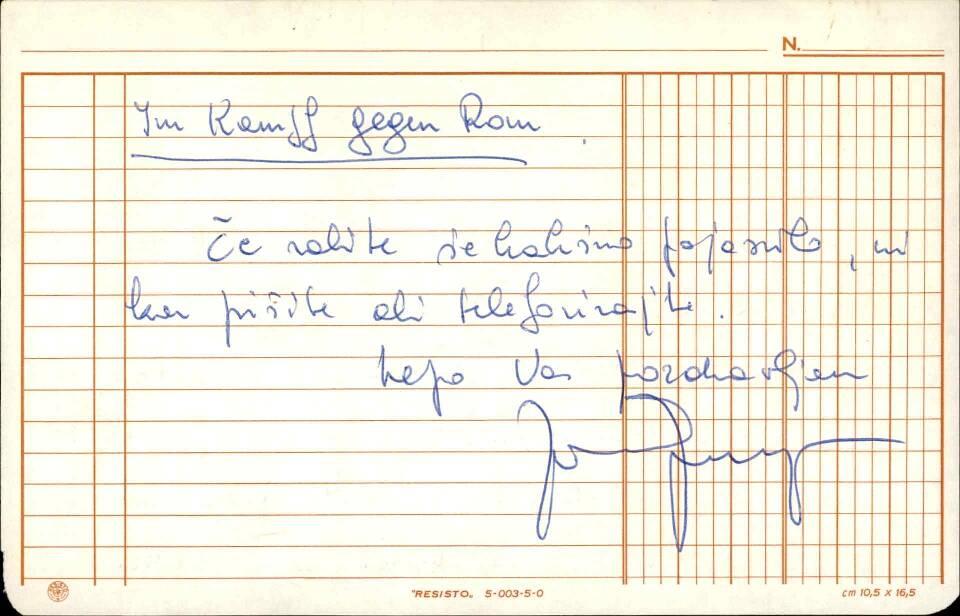 N.
Im Kampf gegen Rom.
Če rabite še kakšno pojasnilo, mi
kar pišite ali telefonirajte.
Lepo Vas pozdravljam
"RESISTO" 5-003-5-0
cm 10,5 x 16,5